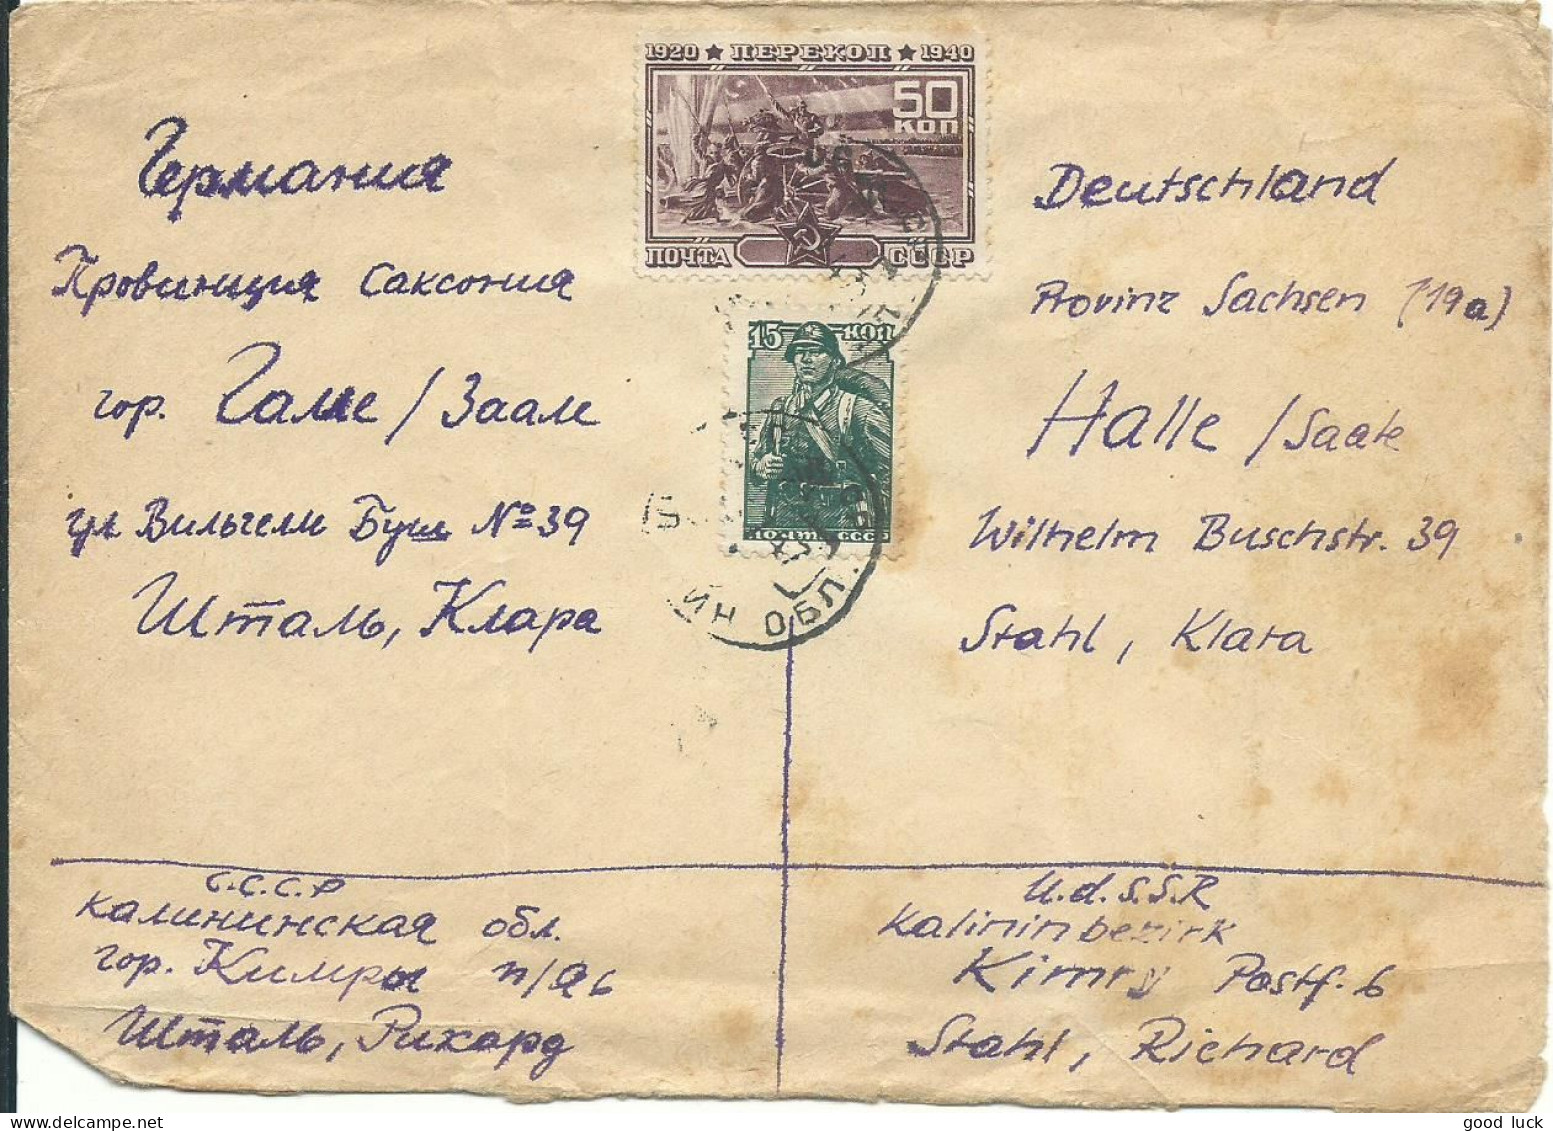 1920 ★ ПЕРЕКОП ★ 1940
50
КОП
ПОЧТА СССР
15 КОП
ПОЧТА СССР
ЙН ОБЛ.
Германия
Провинция Саксония
гор. Галле / Заале
ул Вильгелм Буш № 39
Шталь, Клара
Deutschland
Provinz Sachsen (19a)
Halle / Saale
Wilhelm Buschstr. 39
Stahl, Klara
С.С.С.Р
Калининская обл.
гор. Кимры п/я 6
Шталь, Рихард
U.d.S.S.R
Kalininbezirk
Kimry Postf. 6
Stahl, Richard
good luck